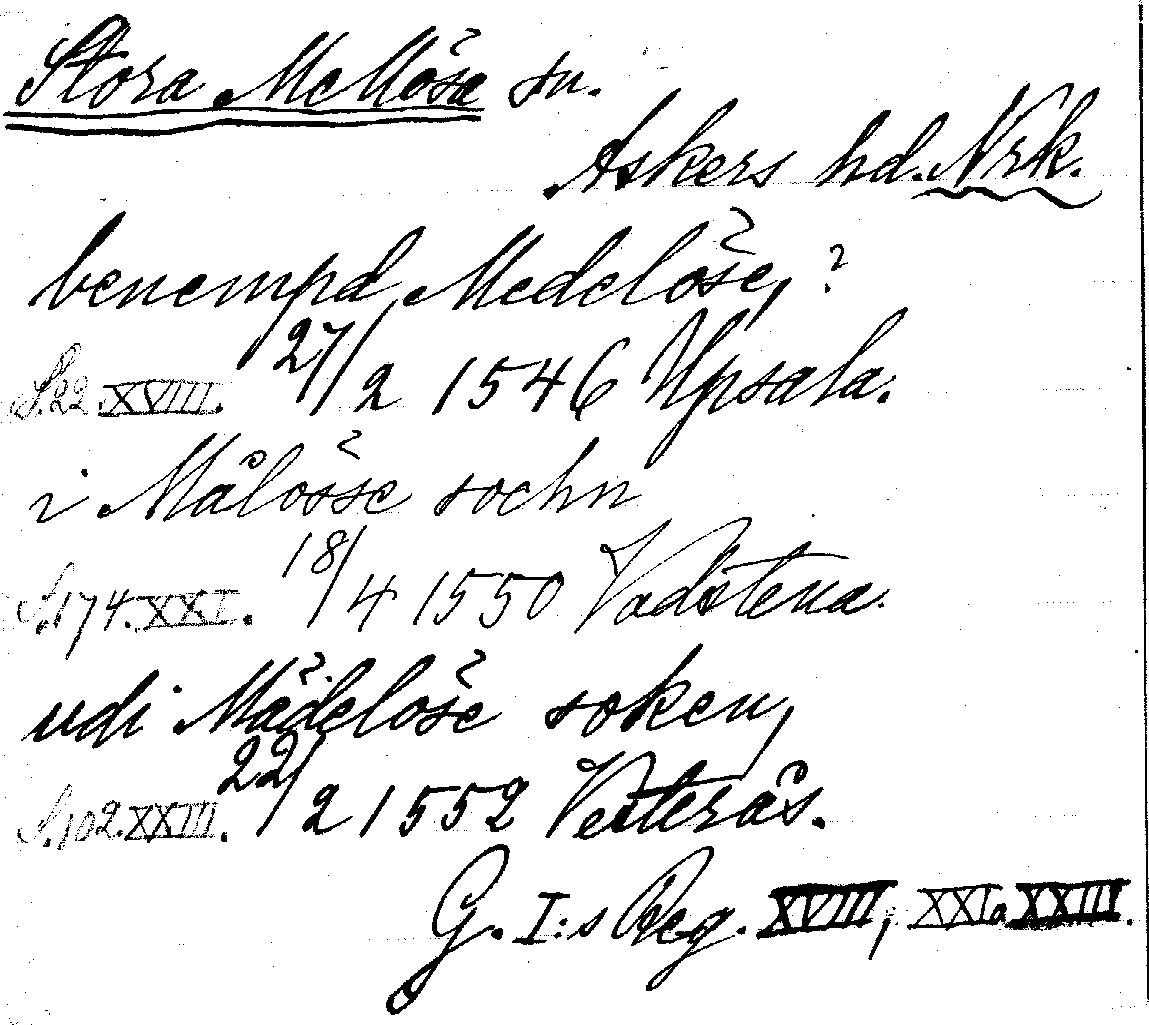 Stora Mellösa sn.
Askers hd. Nrk.
benempd Medelöse, ?
S. 22. XVIII. 27/2 1546 Upsala.
i Målösse sochn
S. 174. XXI. 18/4 1550 Vadstena.
udi Mädelöse soken,
S. 102. XXIII. 22/2 1552 Vesterås.
G. I:s Reg. XVIII, XXI o XXIII.